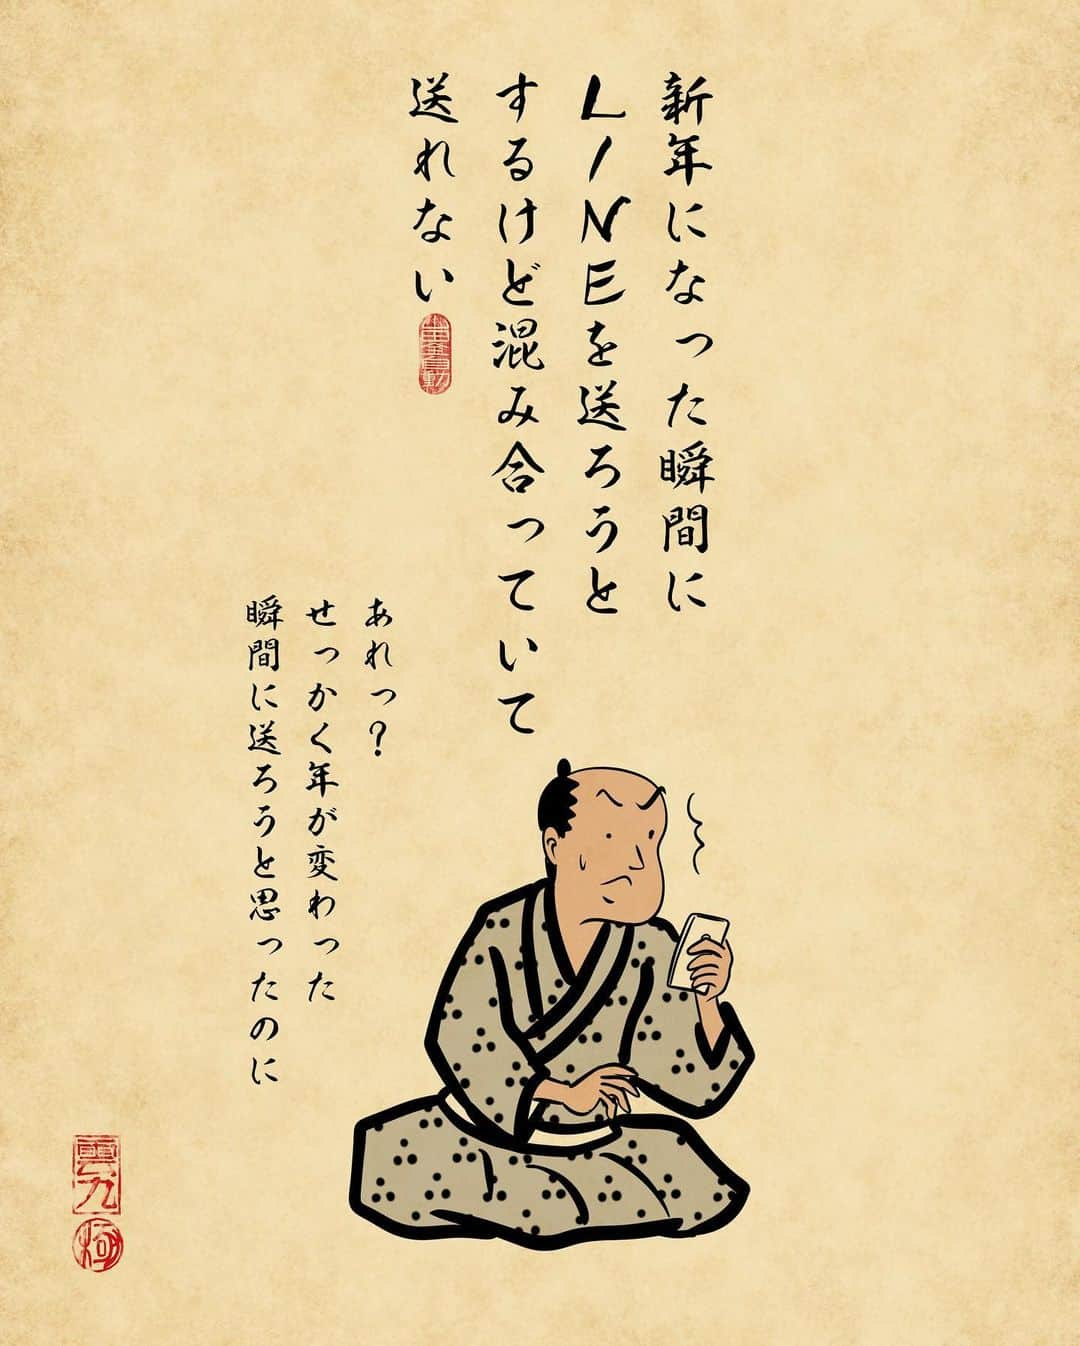 新年になった瞬間に
LINEを送ろうと
するけど混み合っていて
送れない
あれっ？
せっかく年が変わった
瞬間に送ろうと思ったのに